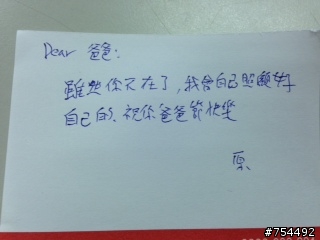 Dear 爸爸:
雖然你不在了,我會自己照顧好
自己的,祝你爸爸節快樂
原
#754492